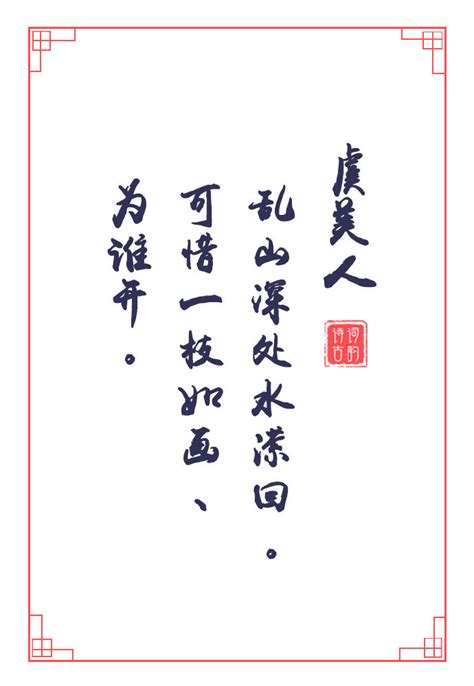 虞美人
乱山深处水潆回。
可惜一枝如画、
为谁开。
诗词古韵